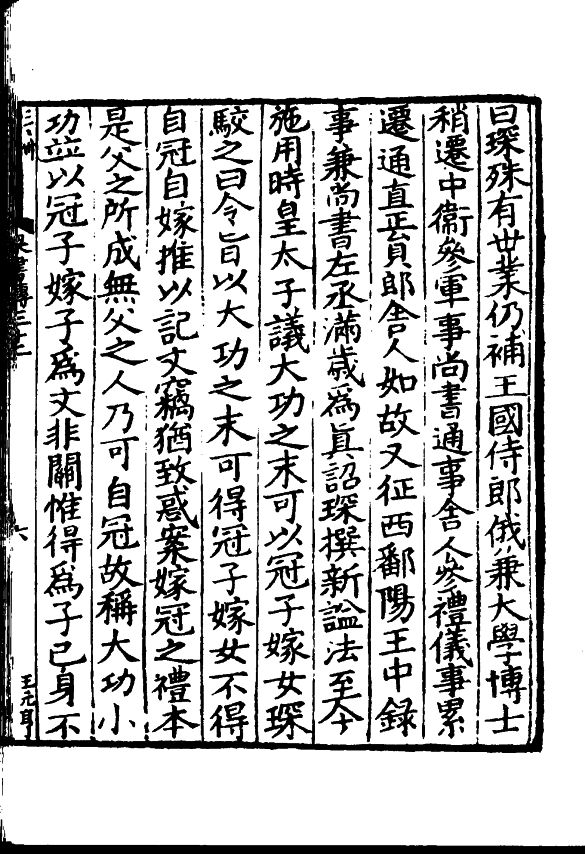 曰琛殊有世業仍補王國侍郎俄兼大學博士
稍遷中衛參軍事尚書通事舍人參禮儀事累
遷通直正員郎舍人如故又征西鄱陽王中錄
事兼尚書左丞滿歲為真詔琛撰新謚法至今
施用時皇太子議大功之末可以冠子嫁女琛
駁之曰令旨以大功之末可得冠子嫁女不得
自冠自嫁推以記文竊猶致惑案嫁冠之禮本
是父之所成無父之人乃可自冠故稱大功小
功並以冠子嫁子為文非關惟得為子己身不
六
王元亨